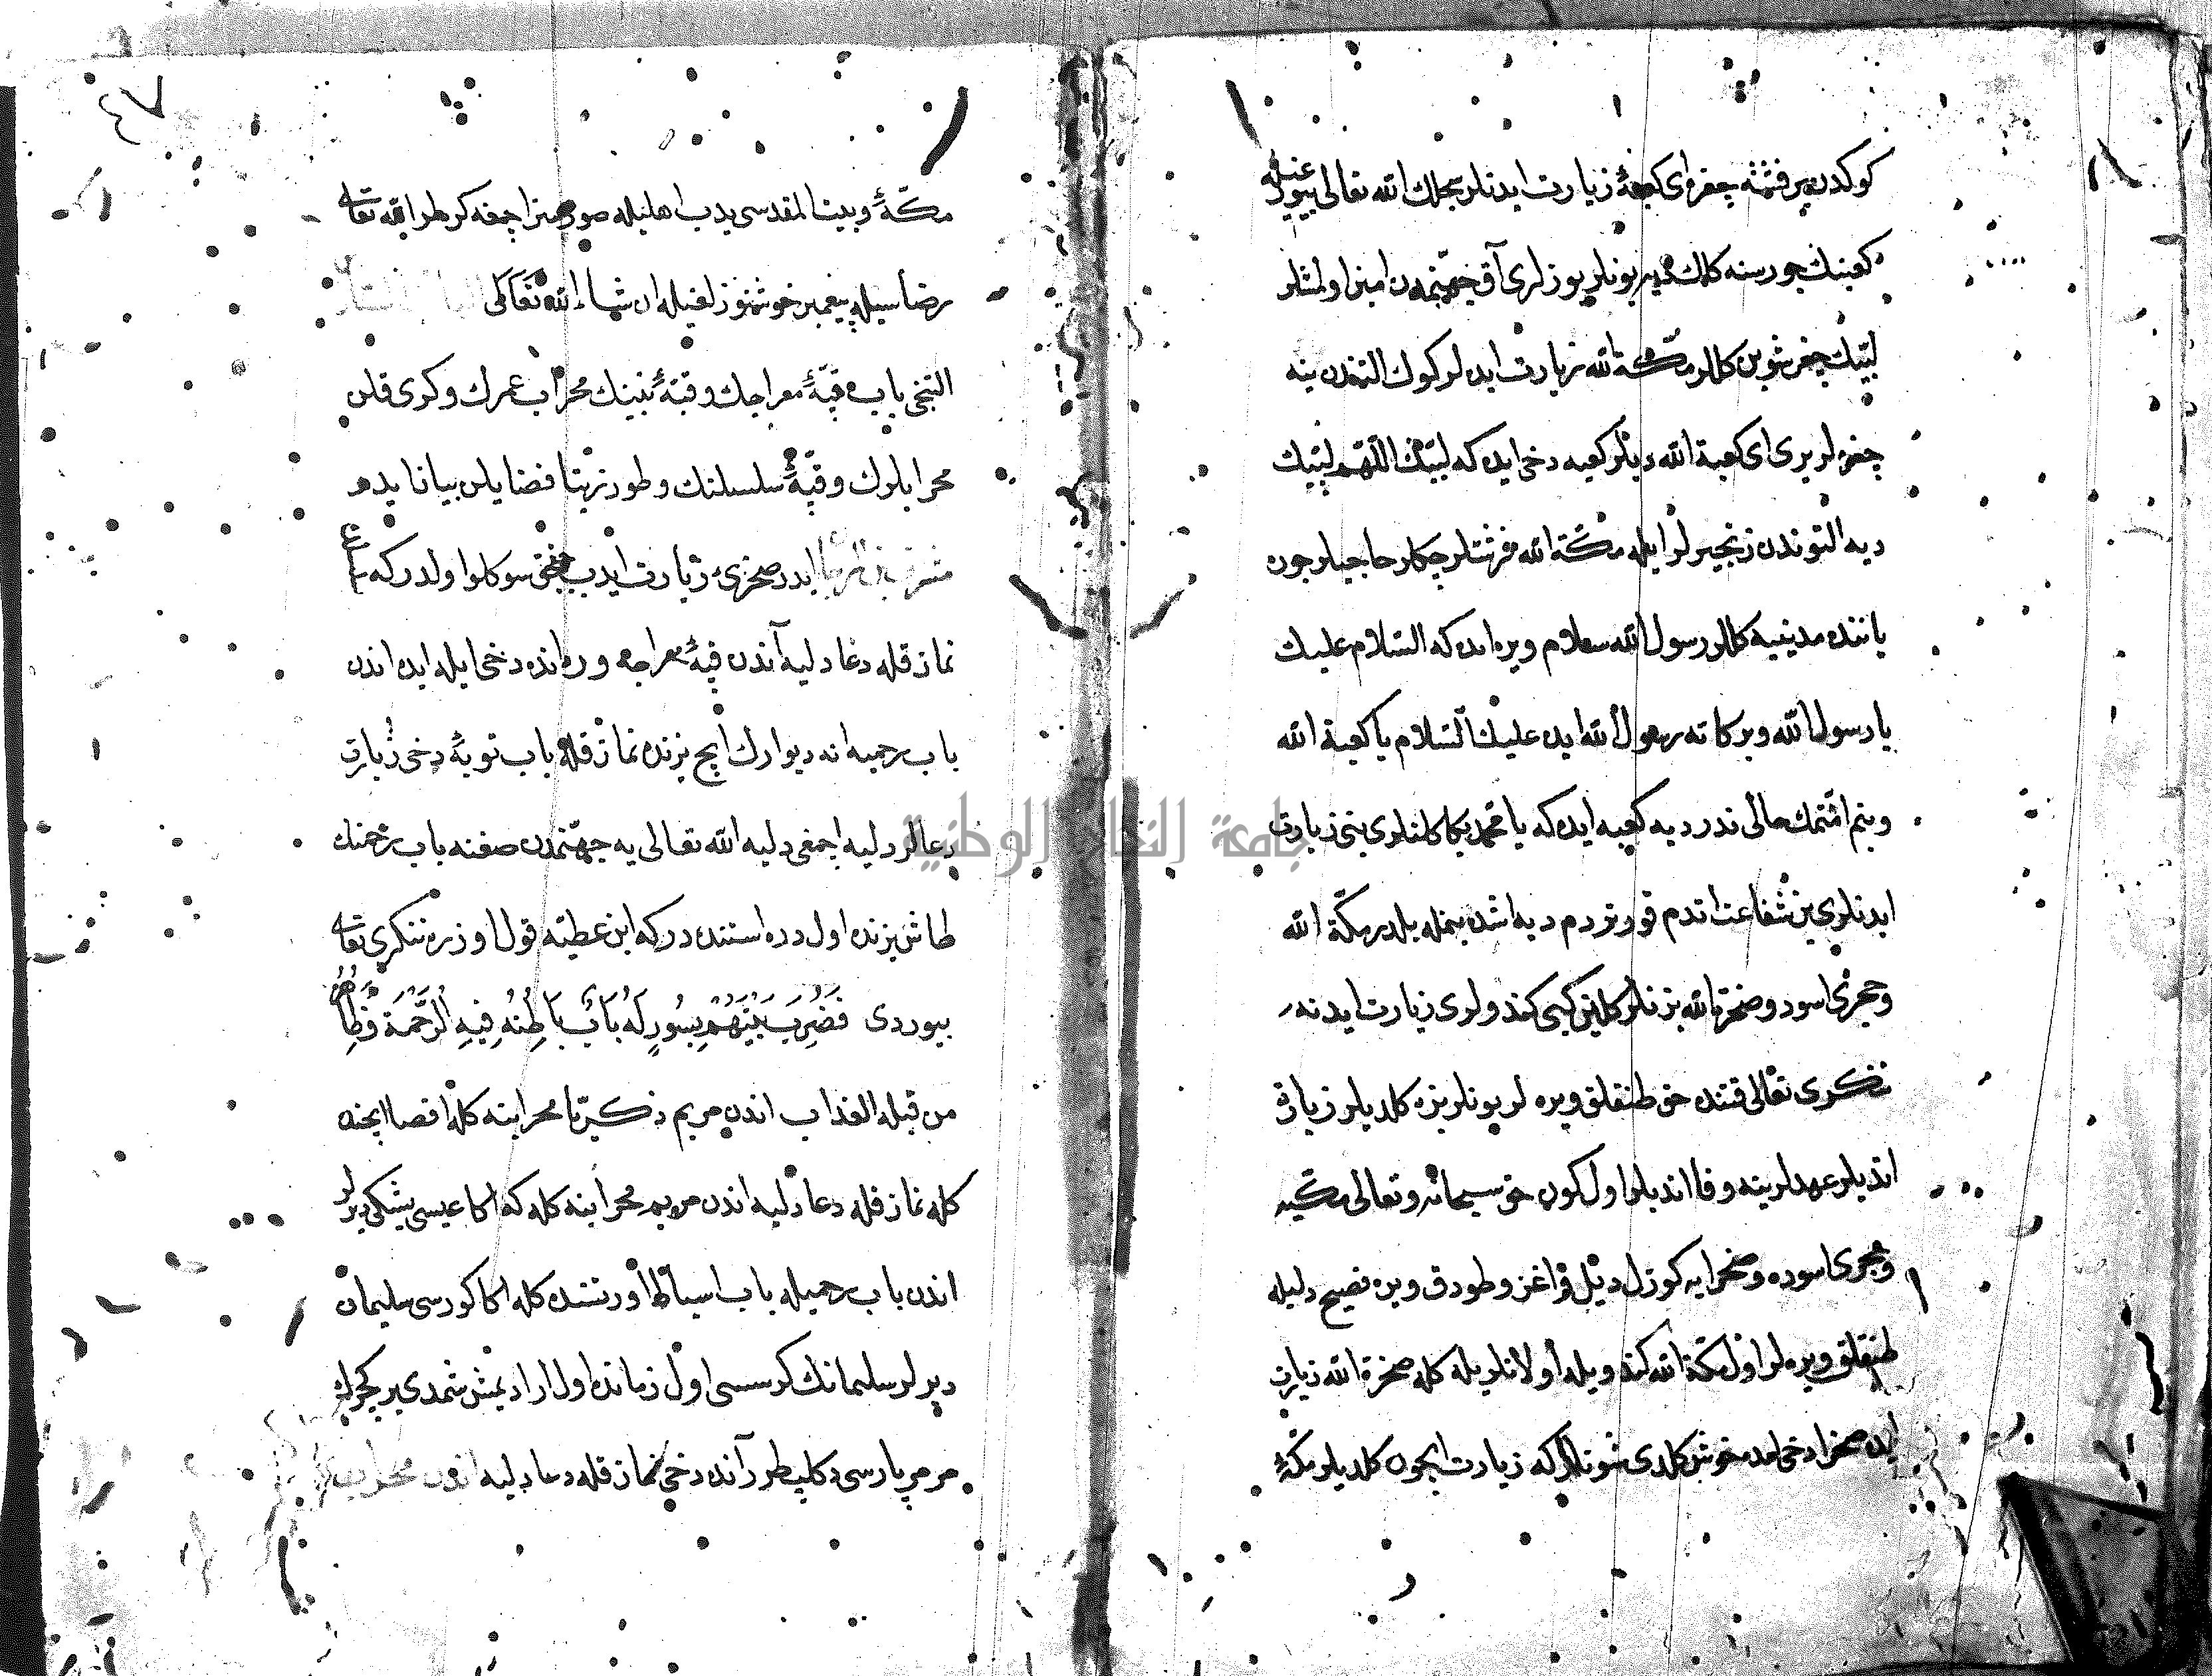 كوكدن بر فرشته چغره اى كعبةُ زيارت ايدنلر سجلك الله تعالى بيورر
كعبنك چورسنه كلك ديير بونلر يوزلرى آق جهنمدن امين اولمشلر
لبيك چغرشوبن كللر مكة الله زيارت ايدلر كوك التندن ينه
چغرلر برى اى كعبة الله ديلر كعبه دخى ايده كه لبيك اللهم لبيك
ديه التوندن زنجيرلر ايله مكة الله فرشتلر چكلر حاجيلر جون
ياننده مدينيه كللر رسول الله سلام ويره ايده كه السلام عليك
يا رسول الله وبركاته رسول الله ايده عليك السلام يا كعبة الله
وبنم امتمك حالى ندر ديه كعبه ايده كه يا محمد بكا كلنلرى بنى زيارت
ايدنلرى بن شفاعت اتدم قورتردم ديه اشده بنمله بلدر مكة الله
وحجرى اسود وصخرة الله بزنلر كلين كبى كندولرى زيارت ايدنه
تنكرى تعالى قتنده حق طنقلق ويره لر بونلر بزه كلديلر زيارت
اتديلر عهدلرينه وفا اتديلر اول كون حق سبحانه وتعالى مكيه
وحجرى اسوده وصخرايه كوزل ديل واغز وطودق ويره فصيح دليله
طنقلق ويره لر اول مكة الله كندويله اولانلريله كله صخرة الله زيارت
ايده صخرا دخى ايده خوش كلدى شونلر كه زيارت ايچون كلديلر مكةُ
٤٧
مكةُ وبيت المقدسى يدب اهليله صورمزا جمغه كررلر الله تعالى
رضاسيله پيغمبر خوشنوزلغيله ان شاء الله تعالى
التنجى باب قبةُ معراجك وقبةُ نبينك محراب عمرك وكرى قلن
محرابلرك وقبةُ سلسلنك وطور زيتا فضايلن بيان ايدر
ايدر صخرى زيارت ايدب چقق سوكلو اولدر كه
نماز قله دعا دليه آندن قبةُ معراجه وره انده دخى ايله ايده اندن
باب رحميه انه ديوارك ايچ يزنده نماز قله باب توبةُ دخى زيارت
دعالر دليه اچمغى دليه الله تعالى يه جهنمدن صغنه باب رحمتك
طاش يزنده اول دره استنده در كه ابن عطيه قول اوزره تنكرى تعالى
بيوردى فَضُرِبَ بَيْنَهُمْ بِسُورٍ لَهُ بَابٌ بَاطِنُهُ فِيهِ الرَّحْمَة وَظَاهِرُهُ
من قبله العذاب اندن مريم ذكريا محرابنه كله اقصا ايچنه
كله نماز قله دعا دليه اندن مريم محرابنه كله كه اكا عيسى بيشكى ديرلر
اندن باب رحميله باب اسباط اورتسنده كله اكا كورسى سليمان
ديرلر سليمانك كرسسى اول زمانده اول ارادمش شمدى بر كچرك
مرمر پارسى دكلپطرر آنده دخى نماز قله دعا دليه اندن محراب
جامعة النجاح الوطنية